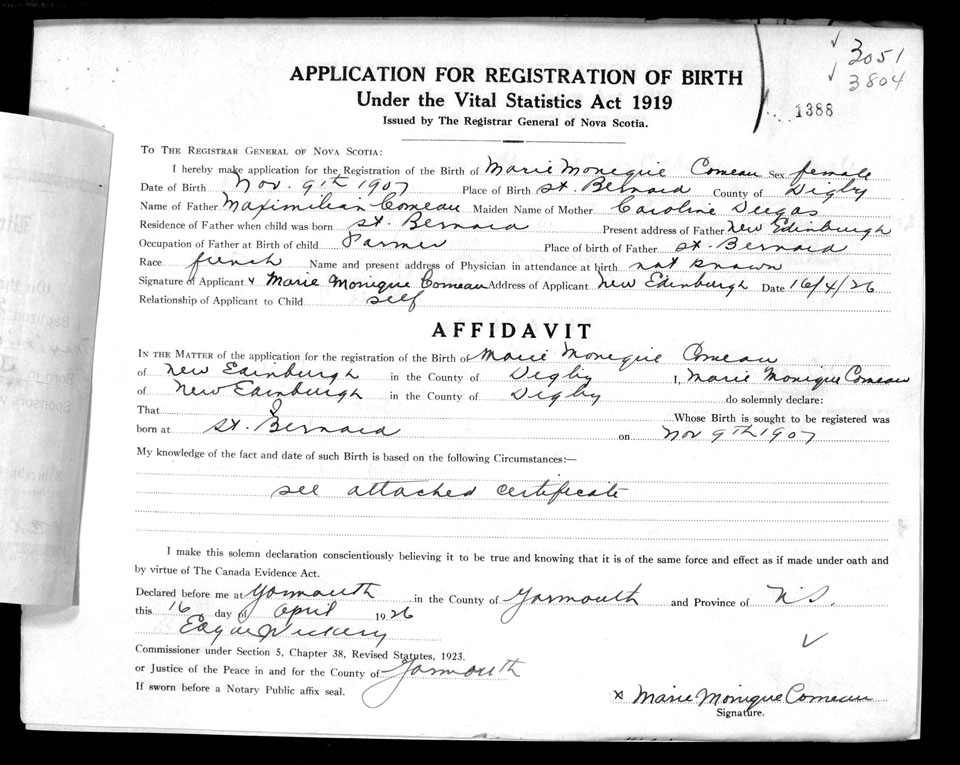 3051
3804
1388
APPLICATION FOR REGISTRATION OF BIRTH
Under the Vital Statistics Act 1919
Issued by The Registrar General of Nova Scotia.
TO THE REGISTRAR GENERAL OF NOVA SCOTIA:
I hereby make application for the Registration of the Birth of Marie Monique Comeau Sex female
Date of Birth Nov. 9th 1907 Place of Birth St. Bernard County of Digby
Name of Father Maximilian Comeau Maiden Name of Mother Caroline Deegas
Residence of Father when child was born St. Bernard Present address of Father New Edinburgh
Occupation of Father at Birth of child Farmer Place of birth of Father St. Bernard
Race french Name and present address of Physician in attendance at birth not known
Signature of Applicant x Marie Monique Comeau Address of Applicant New Edinburgh Date 16/4/26
Relationship of Applicant to Child self
AFFIDAVIT
IN THE MATTER of the application for the registration of the Birth of Marie Monique Comeau
of New Edinburgh in the County of Digby I, Marie Monique Comeau
of New Edinburgh in the County of Digby do solemnly declare:
That I Whose Birth is sought to be registered was
born at St. Bernard on Nov 9th 1907
My knowledge of the fact and date of such Birth is based on the following Circumstances:—
see attached certificate
I make this solemn declaration conscientiously believing it to be true and knowing that it is of the same force and effect as if made under oath and
by virtue of The Canada Evidence Act.
Declared before me at Yarmouth in the County of Yarmouth and Province of N.S.
this 16 day of April 1926
Edgar Vickery
Commissioner under Section 5, Chapter 38, Revised Statutes, 1923.
or Justice of the Peace in and for the County of Yarmouth
If sworn before a Notary Public affix seal.
x Marie Monique Comeau
Signature.